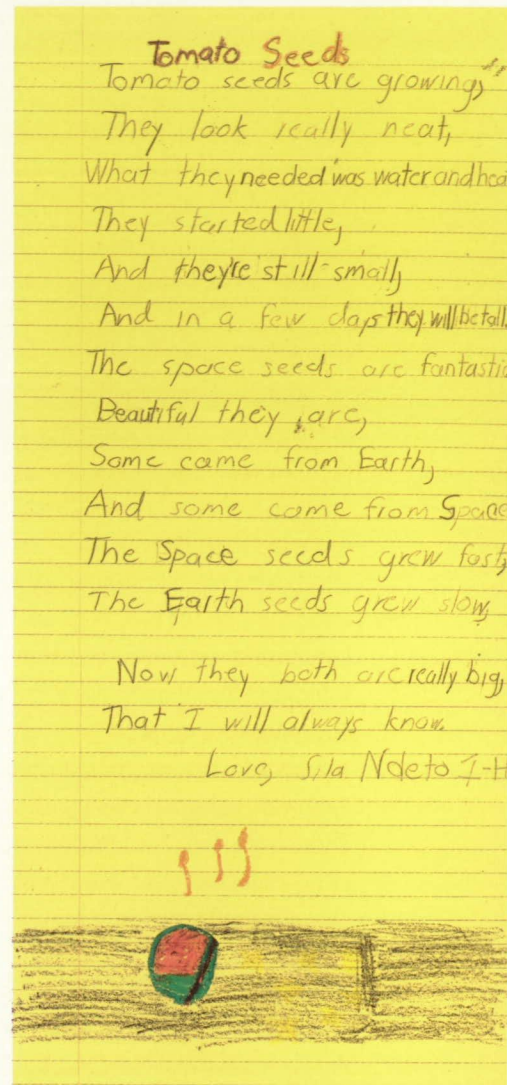 Tomato Seeds
Tomato seeds are growing,
They look really neat,
What they needed was water and hea
They started little,
And they're still small,
And in a few days they will be tall.
The space seeds are fantastic
Beautiful they are,
Some came from Earth,
And some came from Space
The Space seeds grew fast,
The Earth seeds grew slow,
Now they both are really big,
That I will always know.
Love, Sila Ndeto 1-H